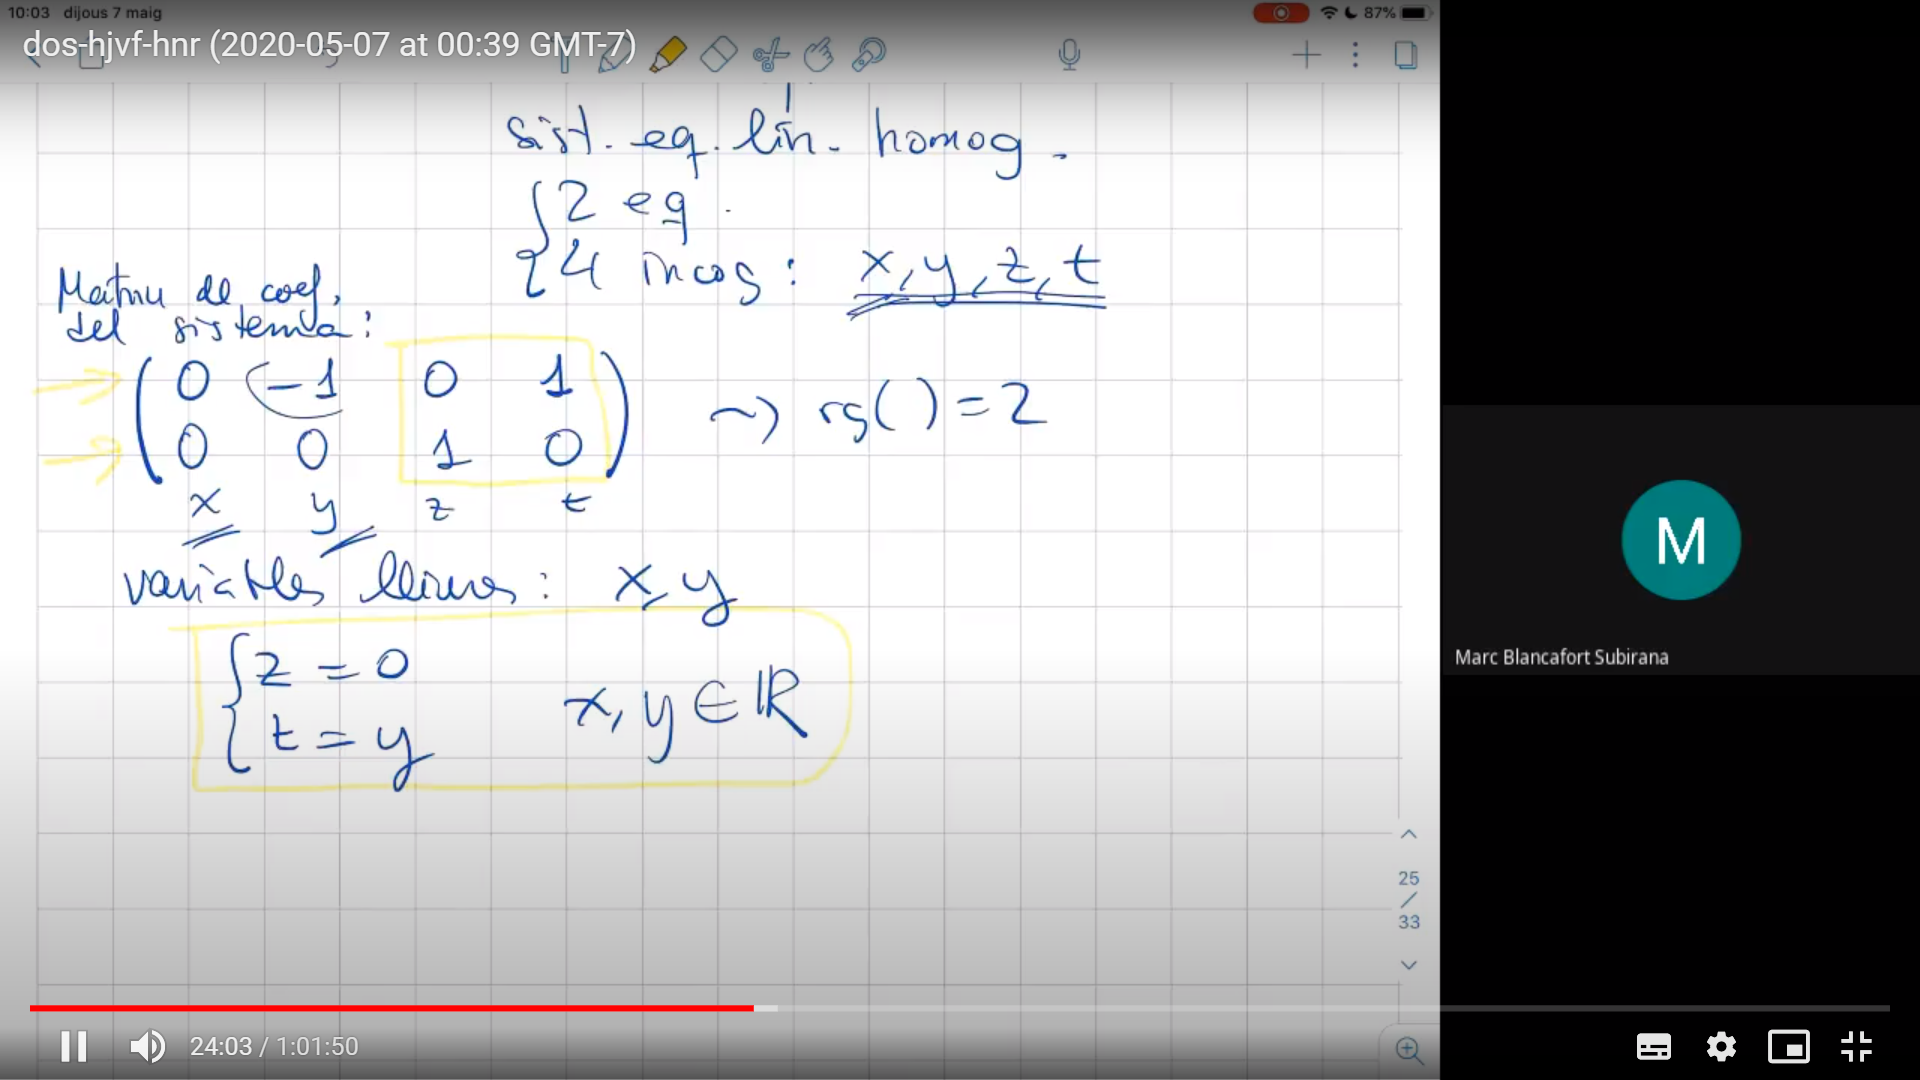 10:03 dijous 7 maig
87%
dos-hjvf-hnr (2020-05-07 at 00:39 GMT-7)
sist. eq. lin. homog.
{ 2 eq.
4 incog: x, y, z, t
Matriu de coef.
del sistema:
( 0 -1 0 1
0 0 1 0 ) ~> rg( ) = 2
x y z t
variables lliures: x, y
{ z = 0
t = y x, y ∈ ℝ
25
/
33
M
Marc Blancafort Subirana
24:03 / 1:01:50